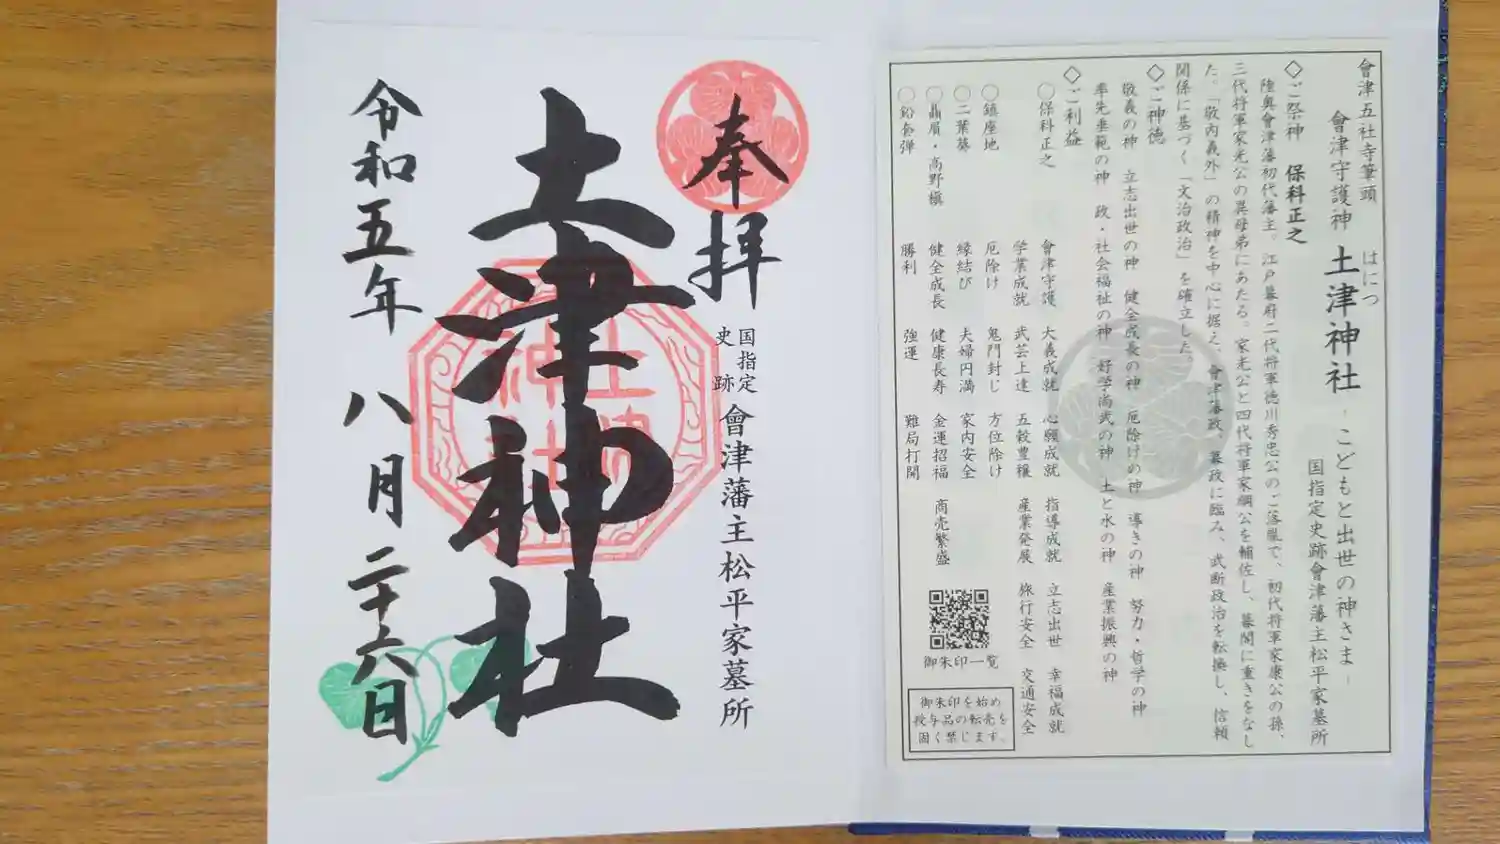 奉拝
国指定
史跡
會津藩主松平家墓所
土津神社
令和五年八月二十六日
會津五社寺筆頭
會津守護神 土津神社 -こどもと出世の神さま-
はにつ
国指定史跡會津藩主松平家墓所
◇ご祭神 保科正之
陸奥會津藩初代藩主。江戸幕府二代将軍徳川秀忠公のご落胤で、初代将軍家康公の孫、
三代将軍家光公の異母弟にあたる。家光公と四代将軍家綱公を輔佐し、幕閣に重きをなし
た。「敬内義外」の精神を中心に据え、會津藩政、幕政に臨み、武断政治を転換し、信頼
関係に基づく「文治政治」を確立した。
◇ご神徳
敬義の神 立志出世の神 健全成長の神 厄除けの神 導きの神 努力・哲学の神
率先垂範の神 政・社会福祉の神 好学尚武の神 土と水の神 産業振興の神
◇ご利益
○保科正之 會津守護 大義成就 心願成就 指導成就 立志出世 幸福成就
学業成就 武芸上達 五穀豊穣 産業発展 旅行安全 交通安全
○鎮座地 厄除け 鬼門封じ 方位除け
○二葉葵 縁結び 夫婦円満 家内安全
○贔屓・高野槇 健全成長 健康長寿 金運招福 商売繁盛
○鉛套弾 勝利 強運 難局打開
御朱印一覧
御朱印を始め
授与品の転売を
固く禁じます。